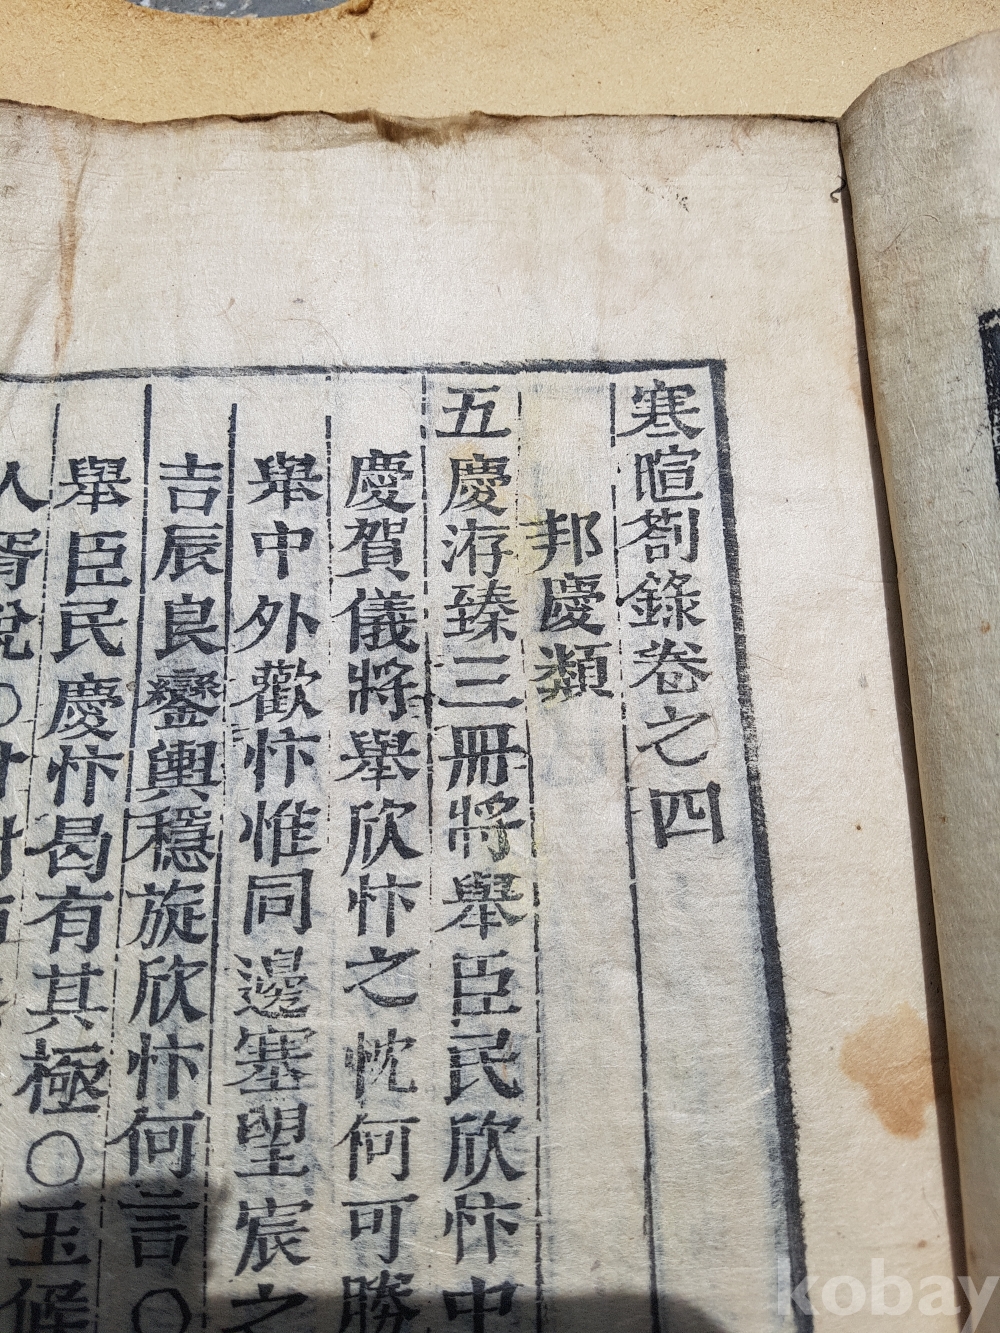 寒暄劄錄卷之四
邦慶類
五慶洊臻三冊將舉臣民欣忭中
慶賀儀將舉欣忭之忱何可勝
舉中外歡忭惟同邊塞望宸之
吉辰良鑾輿穩旋欣忭何言○
舉臣民慶忭曷有其極○玉候
人胥悅○
kobay